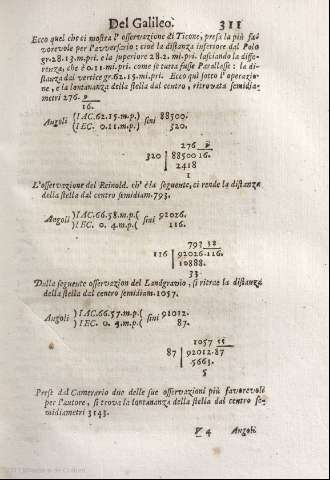 Del Galileo. 311
Ecco quel che ci mostra l'osservazione di Ticone, presa la più fa-
vorevole per l'avversario: cioè la distanza inferiore dal Polo
gr.28.13.m.pri. e la superiore 28.2. mi.pri. lasciando la diffe-
renza, che è 0.11.mi.pri. come se tutta fusse Parallasse: la di-
stanza dal vertice gr.62.15.mi.pri. Ecco quì sotto l'operazio-
ne, e la lontananza della stella dal centro, ritrovata semidia-
metri 276. 9
16.
Angoli (IAC.62.15.m.p.( sini 88500.
(IEC. 0.11.m.p.( 320.
276 9
320 | 88500 16.
2418
1
L'osservazione del Reinold. ch'è la seguente, ci rende la distanza
della stella dal centro semidiam.793.
Angoli )IAC.66.58.m.p.( sini 92026.
)IEC. 0. 4.m.p.( 116.
793 38
116 | 92026.116.
10888.
33.
Dalla seguente osservazion del Landgravio, si ritrae la distanza
della stella dal centro semidiam.1057.
Angoli )IAC.66.57.m.p.( sini 91012.
)IEC. 0. 3.m.p.( 87.
1057 55
87 | 92012.87
5663.
5
Prese dal Camerario due delle sue osservazioni più favorevoli
per l'autore, si trova la lontananza della stella dal centro se-
midiametri 3143.
V 4 Angoli